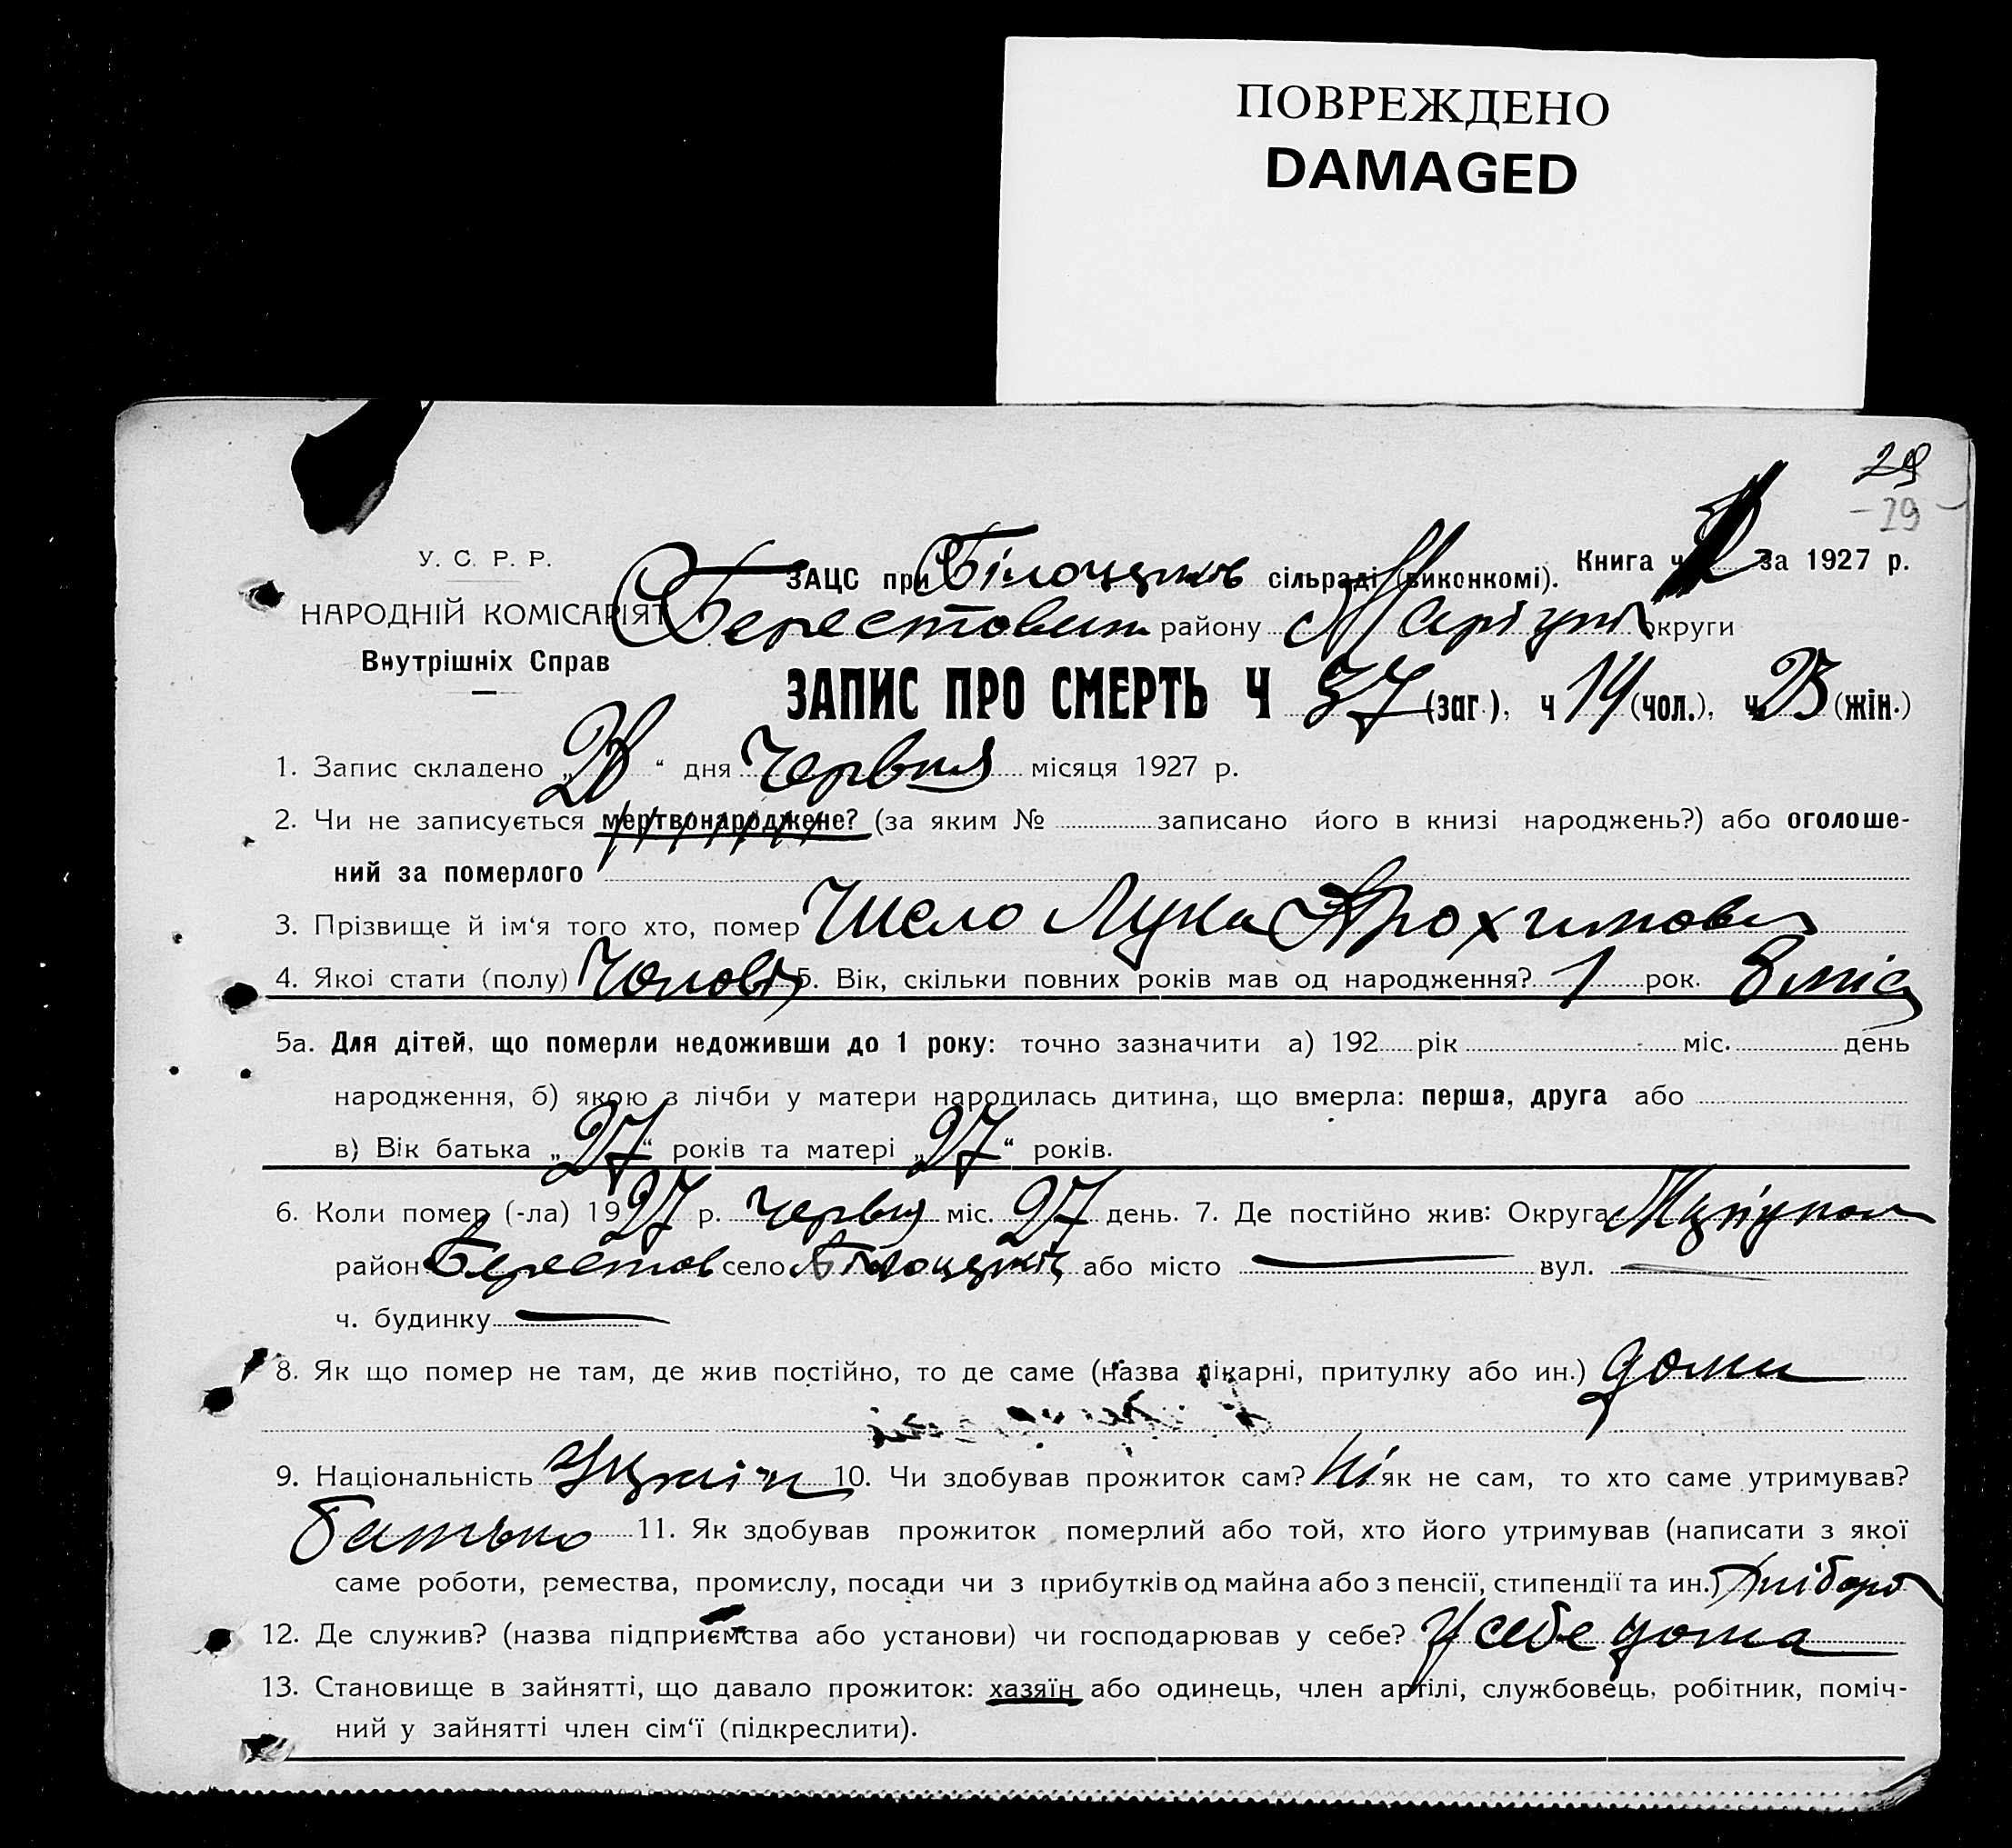 ПОВРЕЖДЕНО
DAMAGED
29
- 29 -
У. С. Р. Р.
НАРОДНІЙ КОМІСАРІЯТ
Внутрішніх Справ
ЗАЦС при Білоцерків сільраді (виконкомі). Книга ч. за 1927 р.
Берестовин району Маріуп округи
ЗАПИС ПРО СМЕРТЬ Ч 37 (заг.), ч 14 (чол.), ч. 23 (жін.)
1. Запис складено „28“ дня Червня місяця 1927 р.
2. Чи не записується мертвонароджене? (за яким № записано його в книзі народжень?) або оголоше-
ний за померлого
3. Прізвище й ім‘я того хто, помер Лука
4. Якої стати (полу) Чолов 5. Вік, скільки повних років мав од народження? 1 рок. 8 міс
5а. Для дітей, що померли недоживши до 1 року: точно зазначити а) 192 рік міс. день
народження, б) якою з лічби у матери народилась дитина, що вмерла: перша, друга або
в) Вік батька „27“ років та матері „27“ років.
6. Коли помер (-ла) 1927 р. червня міс. 27 день. 7. Де постійно жив: Округа Маріупол
район Берестов село або місто вул.
ч. будинку
8. Як що помер не там, де жив постійно, то де саме (назва лікарні, притулку або ин.) дома
9. Національність Україн 10. Чи здобував прожиток сам? Ні як не сам, то хто саме утримував?
батько 11. Як здобував прожиток померлий або той, хто його утримував (написати з якої
саме роботи, ремества, промислу, посади чи з прибутків од майна або з пенсії, стипендії та ин.) Хлібороб
12. Де служив? (назва підприємства або установи) чи господарював у себе? У себе дома
13. Становище в зайнятті, що давало прожиток: хазяїн або одинець, член артілі, службовець, робітник, поміч-
ний у зайнятті член сім‘ї (підкреслити).